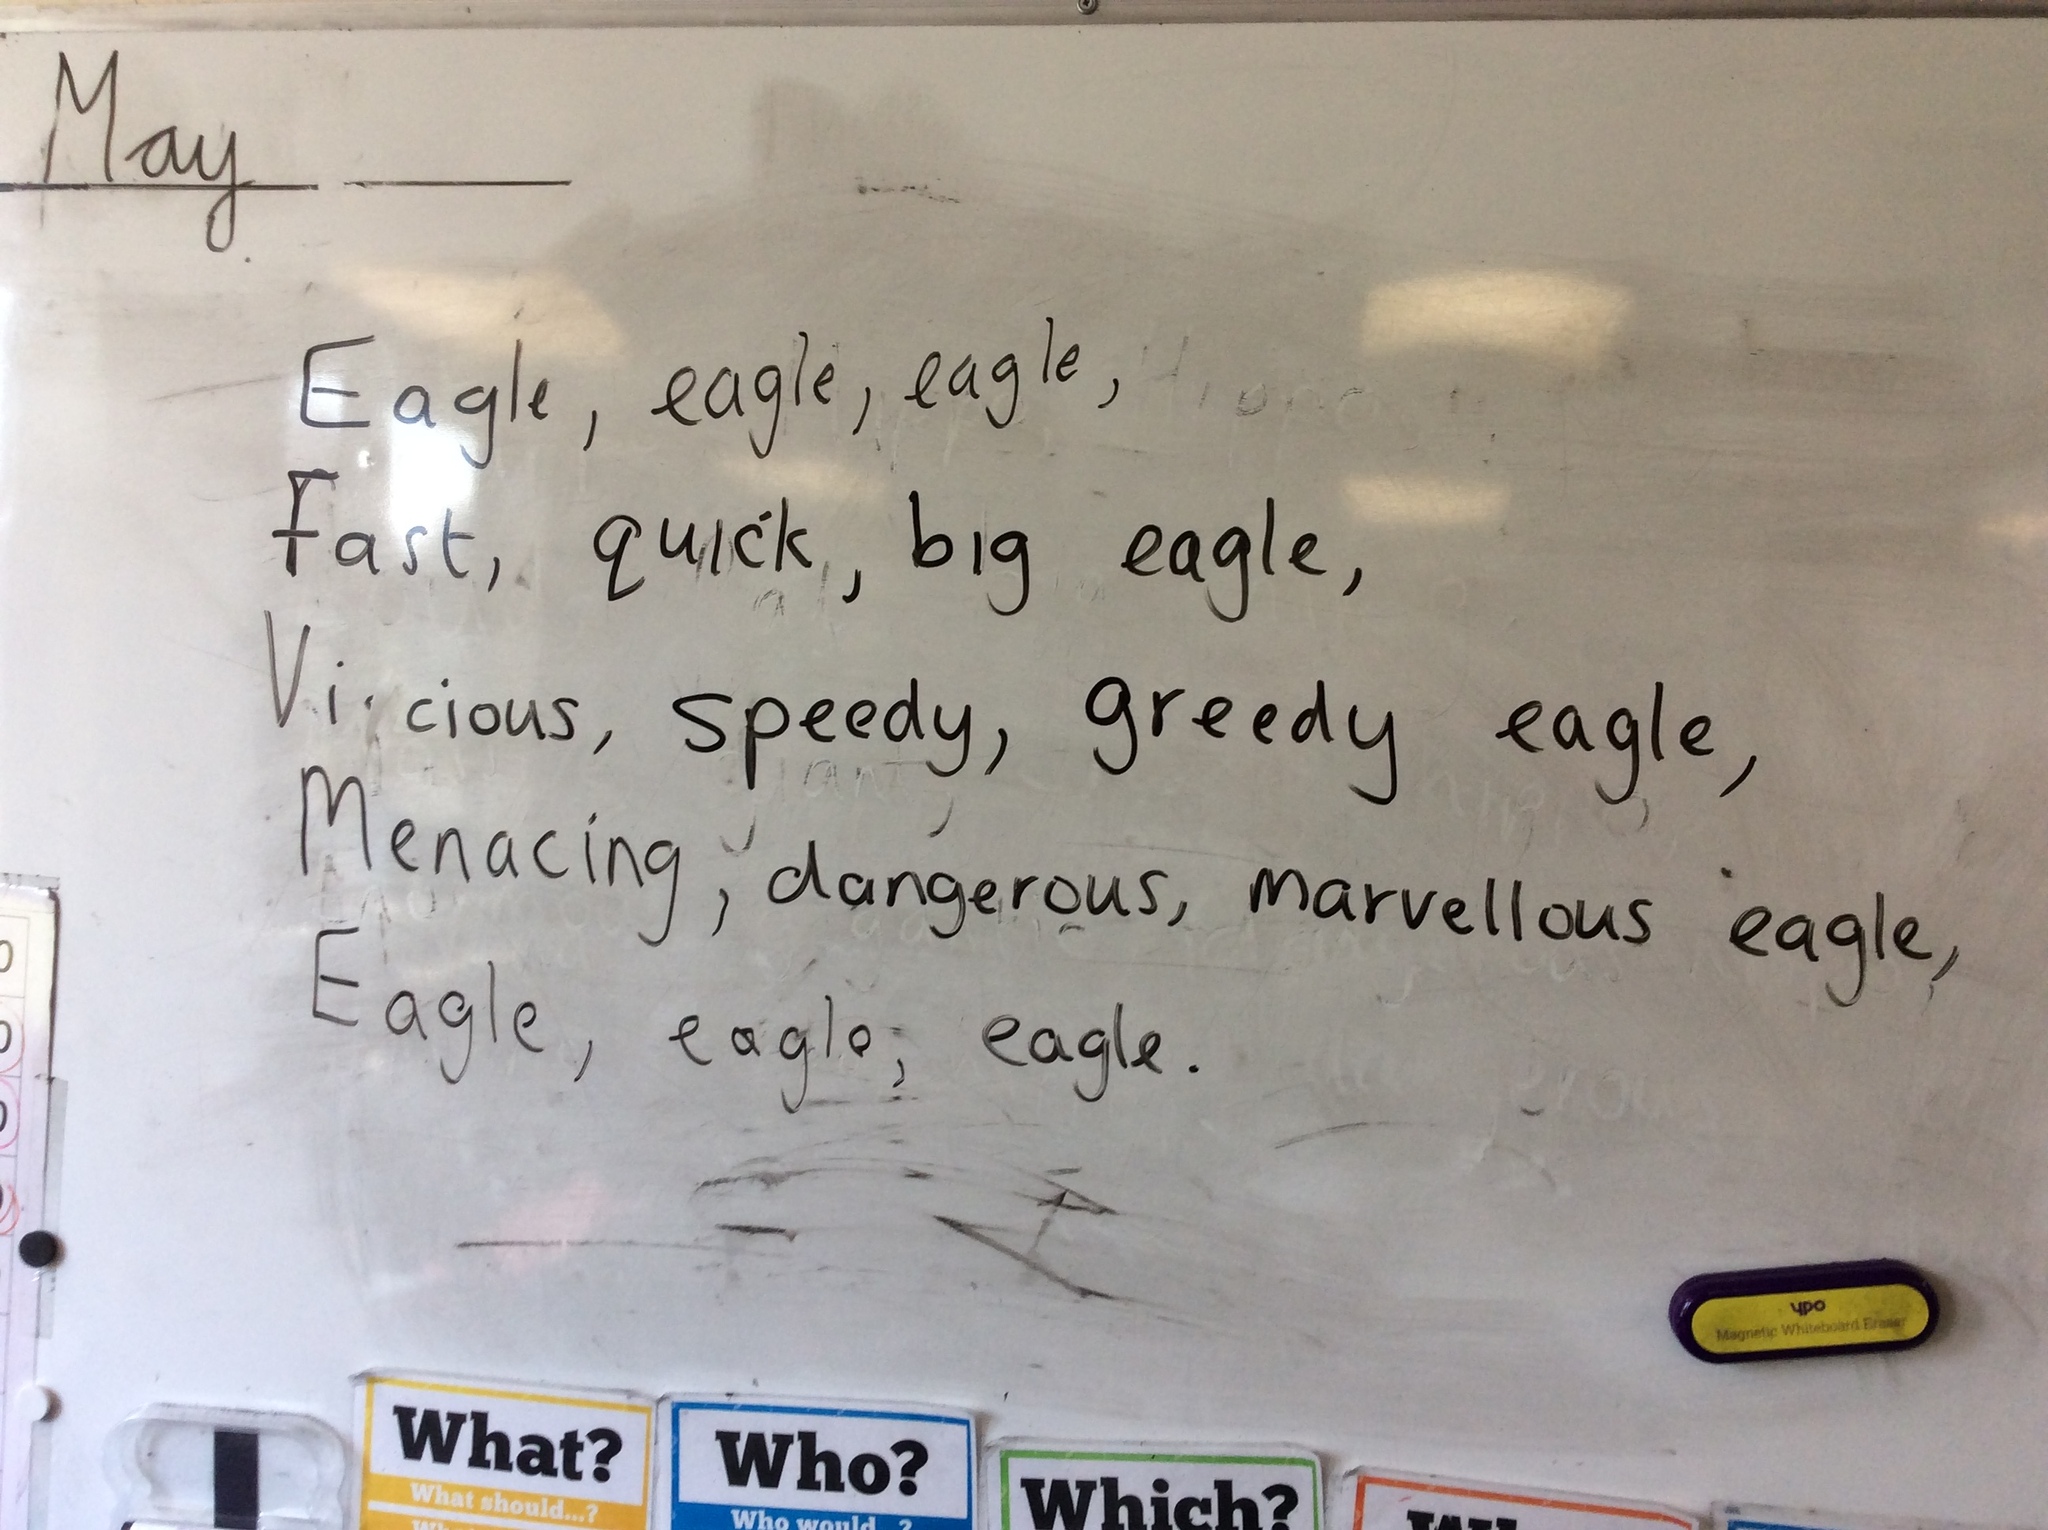 May
Eagle, eagle, eagle,
Fast, quick, big eagle,
Vicious, speedy, greedy eagle,
Menacing, dangerous, marvellous eagle,
Eagle, eagle, eagle.
ypo
Magnetic Whiteboard Eraser
What? Who? Which?
What should...? Who would...?